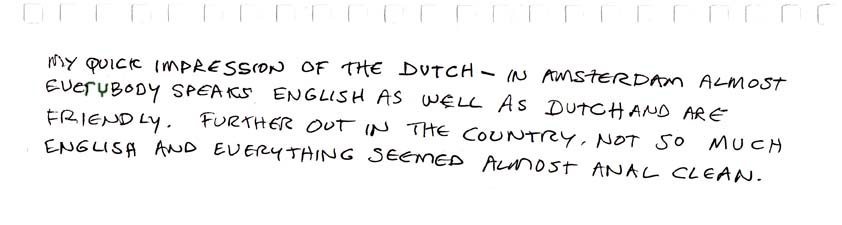 MY QUICK IMPRESSION OF THE DUTCH – IN AMSTERDAM ALMOST
EVERYBODY SPEAKS ENGLISH AS WELL AS DUTCH AND ARE
FRIENDLY. FURTHER OUT IN THE COUNTRY, NOT SO MUCH
ENGLISH AND EVERYTHING SEEMED ALMOST ANAL CLEAN.